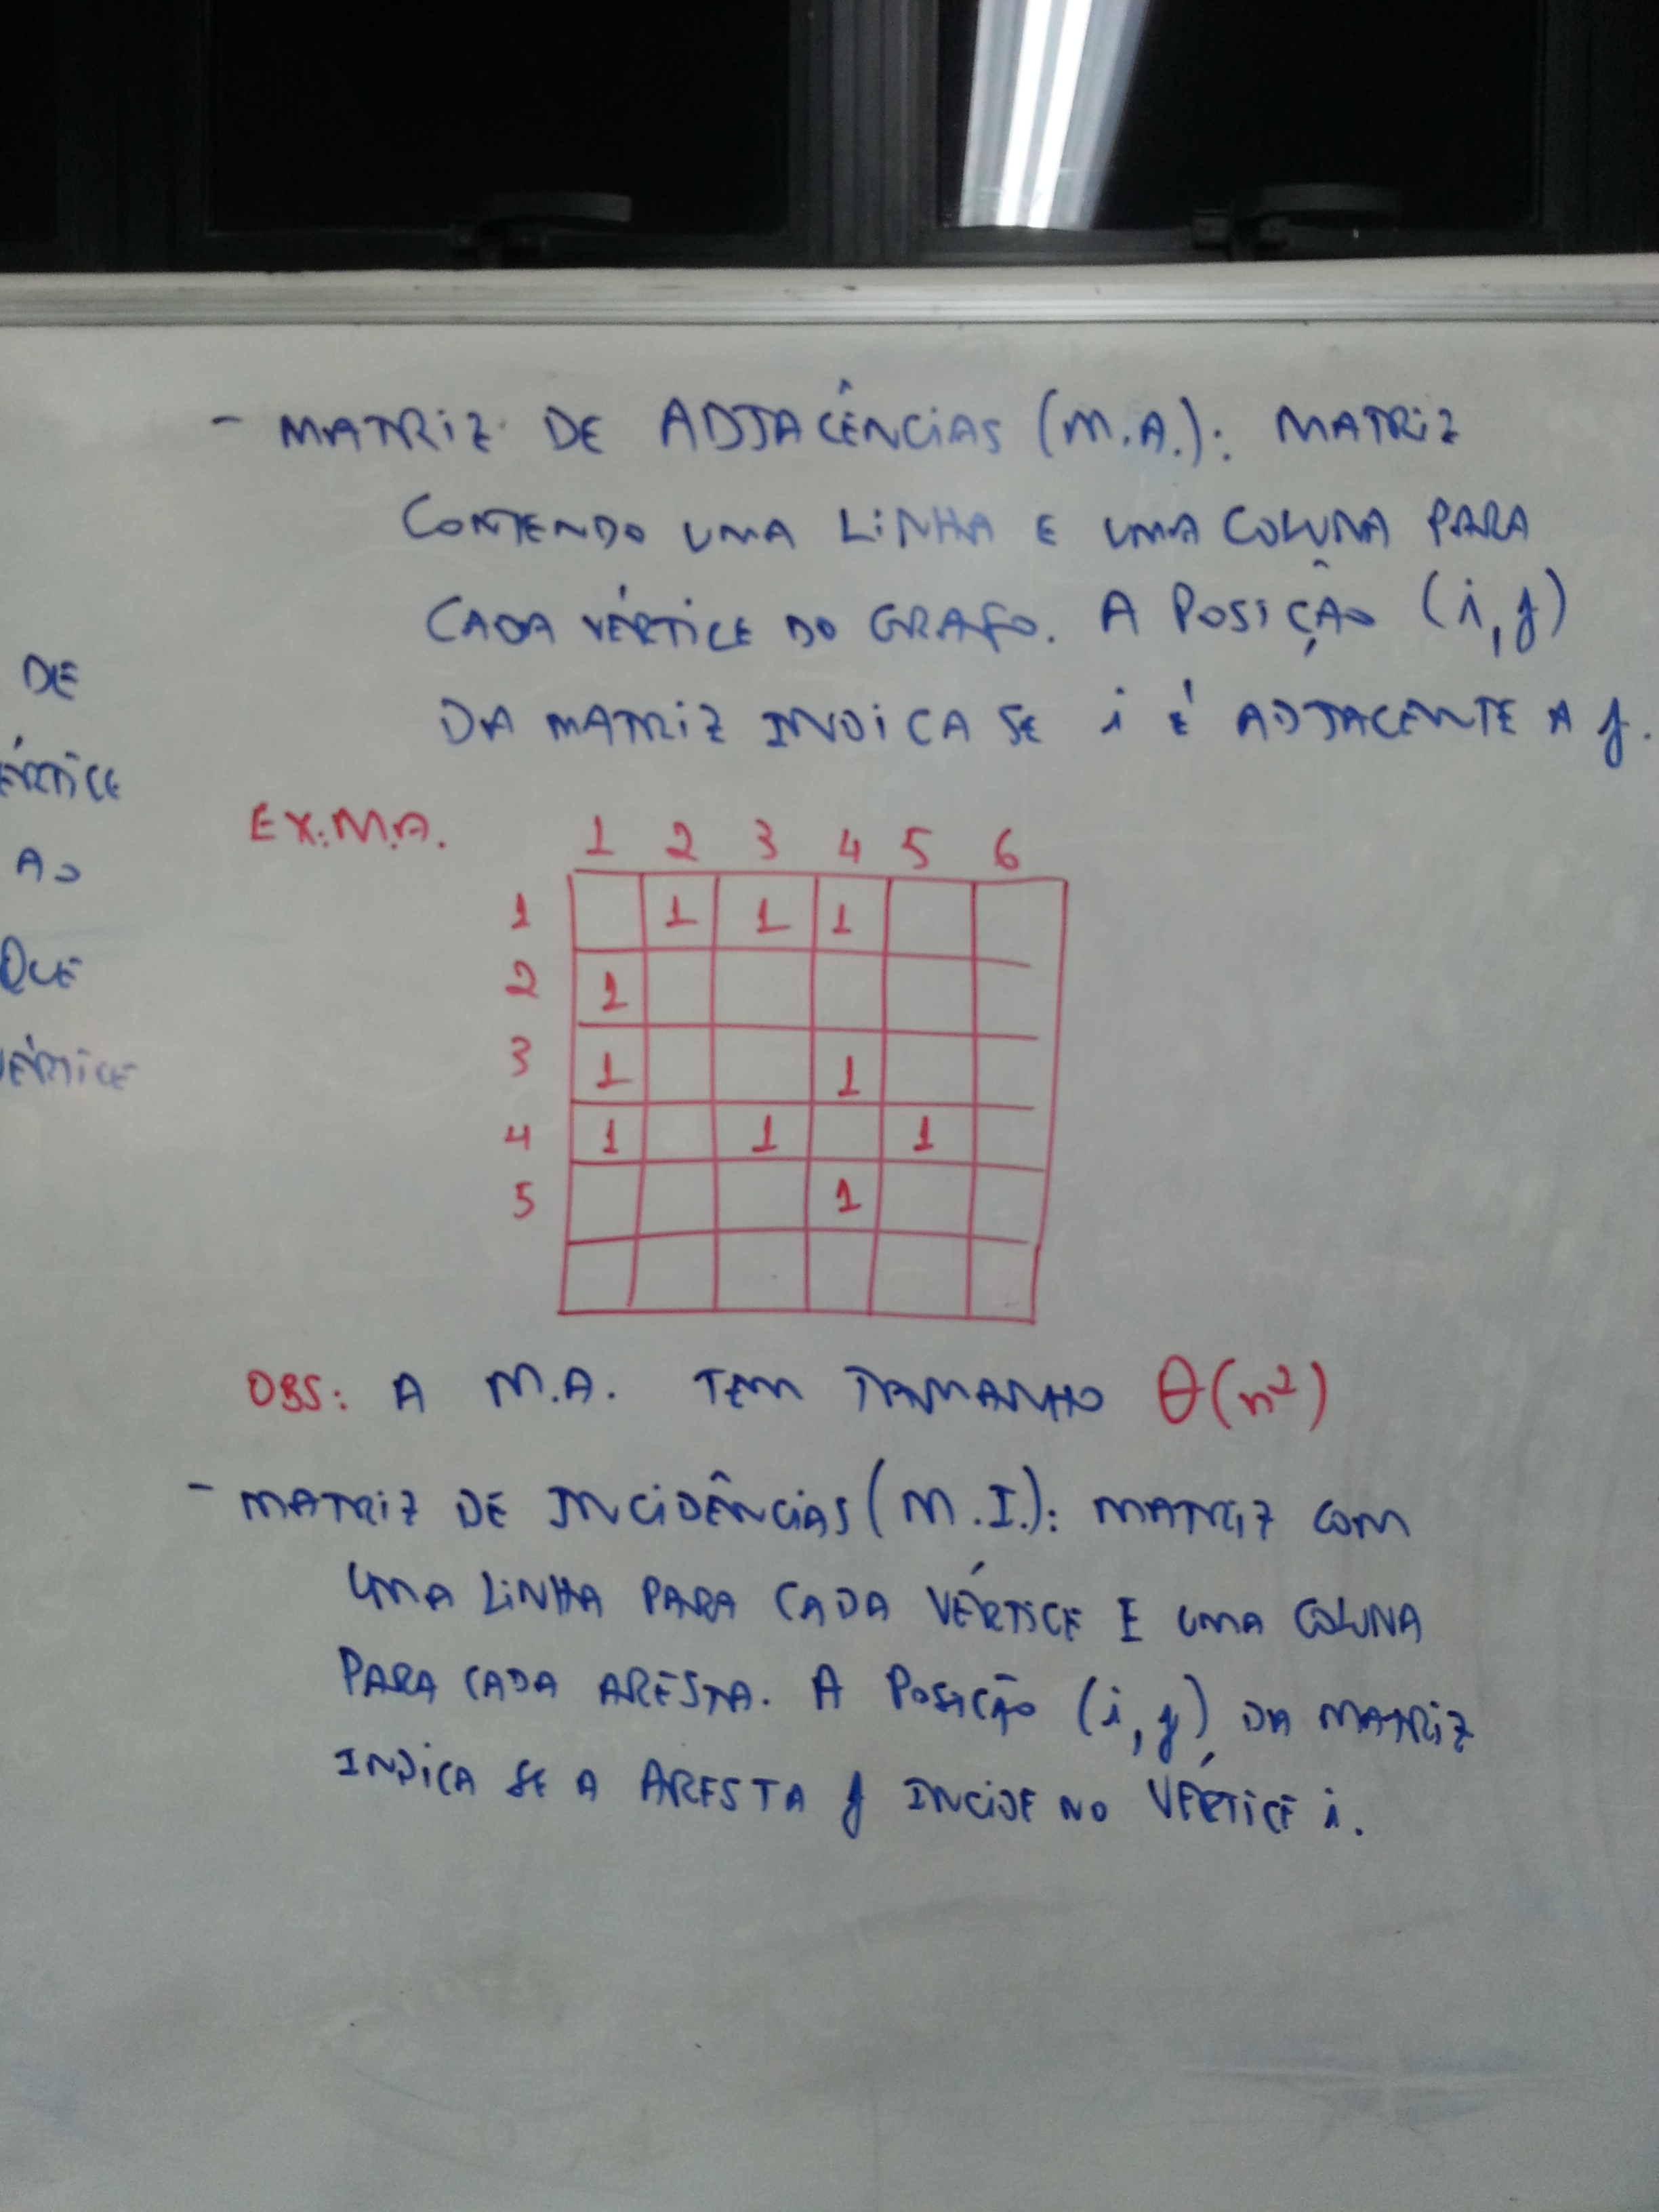 - MATRIZ DE ADJACÊNCIAS (M.A.): MATRIZ
CONTENDO UMA LINHA E UMA COLUNA PARA
CADA VÉRTICE DO GRAFO. A POSIÇÃO (i,j)
DA MATRIZ INDICA SE i É ADJACENTE A j.
DE
ÉRTICE
AO
QUE
VÉRTICE
EX: M.A.
1 2 3 4 5 6
1 1 1 1
2 1
3 1 1
4 1 1 1
5 1
OBS: A M.A. TEM TAMANHO Θ(n²)
- MATRIZ DE INCIDÊNCIAS (M.I.): MATRIZ COM
UMA LINHA PARA CADA VÉRTICE E UMA COLUNA
PARA CADA ARESTA. A POSIÇÃO (i,j) DA MATRIZ
INDICA SE A ARESTA j INCIDE NO VÉRTICE i.